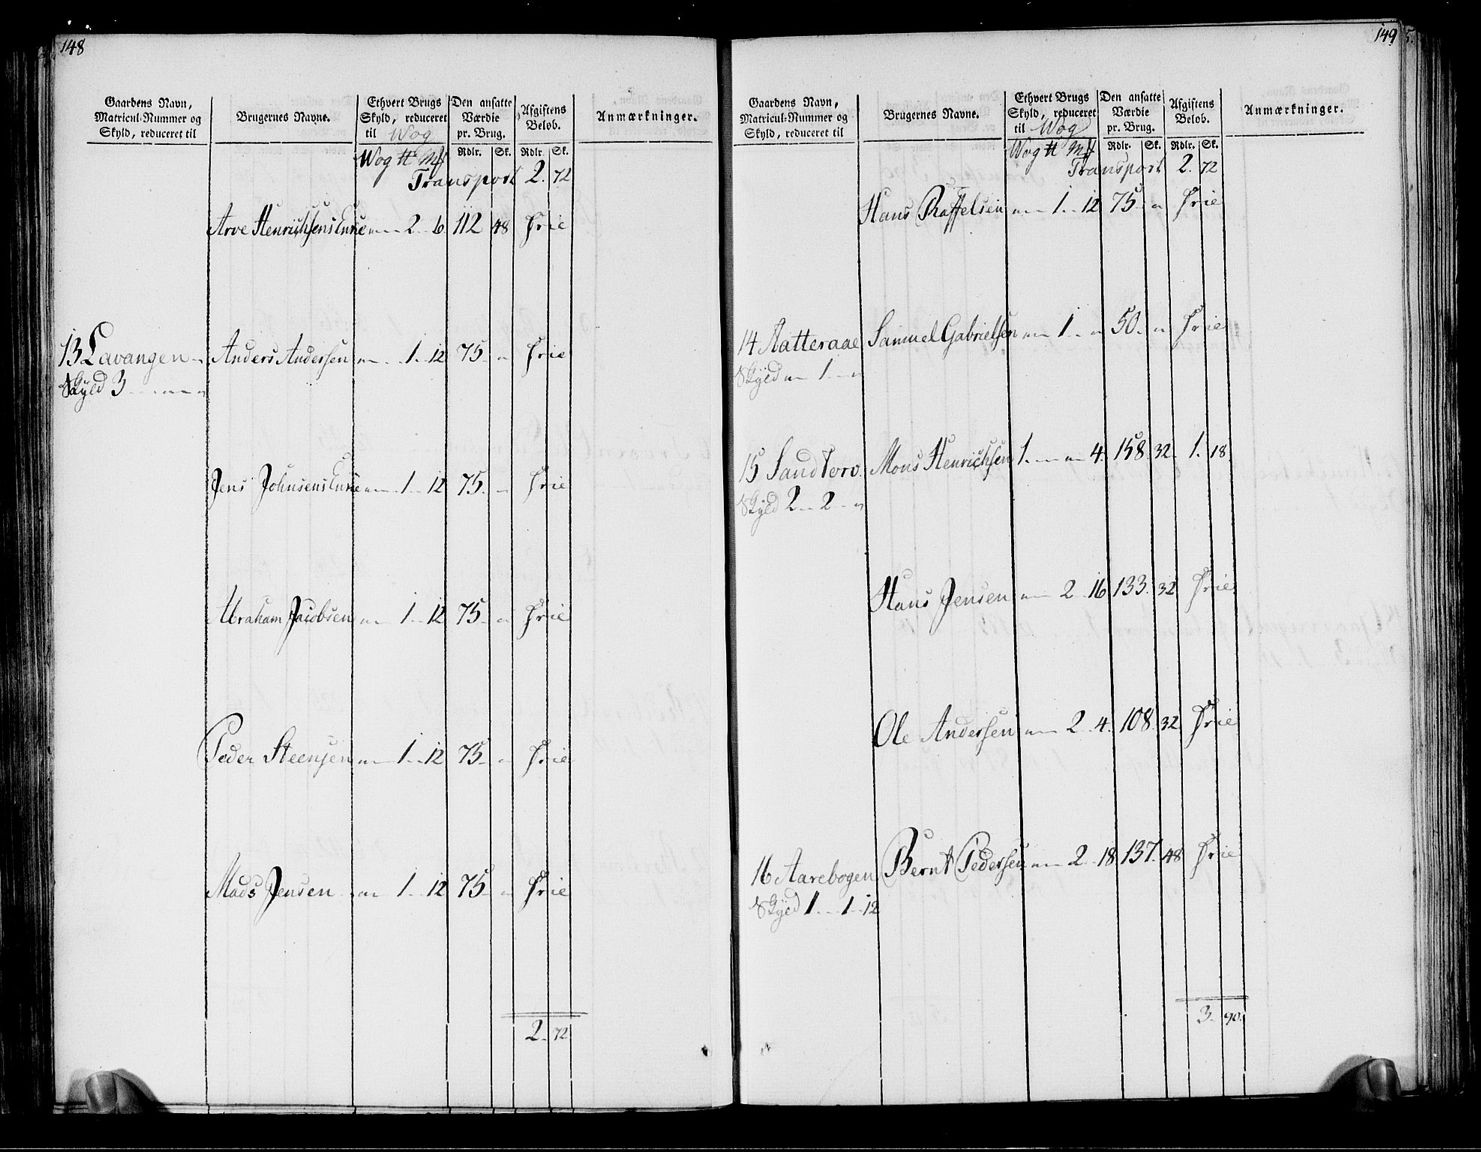 148
Gaardens Navn, Matricul-Nummer og Skyld, reduceret til
Brugernes Navne.
Ethvert Brugs Skyld, reduceret til Wog
Den ansatte Værdie pr. Brug.
Afgiftens Beløb.
Anmærkninger.
Wog # Mk Rdlr. Sk. Rdlr. Sk.
Transport 2. 72
Arve Henrichsens Enke 2. 6 112 48 Frie
13 Lavangen Anders Andersen 1. 12 75. Frie
Skyld 3
Jens Johnsens Enke 1. 12 75. Frie
Abraham Jacobsen 1. 12 75. Frie
Peder Steensen 1. 12 75. Frie
Mads Jensen 1. 12 75. Frie
2. 72
149
Gaardens Navn, Matricul-Nummer og Skyld, reduceret til
Brugernes Navne.
Ethvert Brugs Skyld, reduceret til Wog
Den ansatte Værdie pr. Brug.
Afgiftens Beløb.
Anmærkninger.
Wog # Mk Rdlr. Sk. Rdlr. Sk.
Transport 2. 72
Hans Raffelsen 1. 12 75. Frie
14 Aatteraae Samuel Gabrielsen 1 50. Frie
Skyld 1
15 Sandtorv Mons Henrichsen 1. 4. 158. 32. 1. 18
Skyld 2 2
Hans Jensen 2. 16 133. 32 Frie
Ole Andersen 2. 4. 108. 32 Frie
16 Aarebogen Bernt Pedersen 2. 18 137. 48 Frie
Skyld 1 1 12
3. 90.